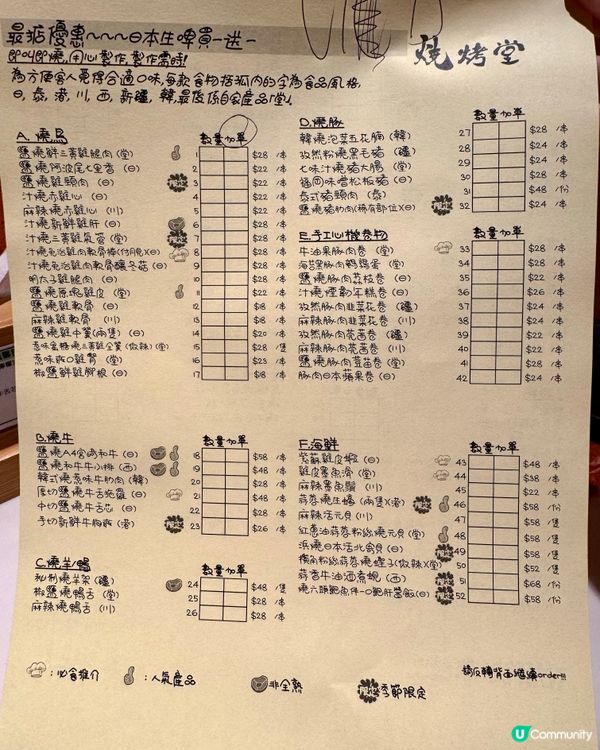 最抵優惠~~~日本生啤買一送一
即叫即燒,用心製作,製作需時!
為方便客人覓得合適口味,每款食物括弧內的字為食品風格
日,泰,港,川,西,新疆,韓,最後係自家產品「堂」.
燒烤堂
A.燒鳥
數量 加單
鹽燒鮮三黃雞腿肉(堂) 1 $28 /本
鹽燒阿波尾七里香(日) 2 $22 /本
鹽燒雞頸肉(日) 3 $22 /本
汁燒赤雞心(日) 4 $22 /本
麻辣燒赤雞心(川) 5 $22 /本
汁燒新鮮雞肝(日) 6 $28 /本
汁燒三黃雞氣管(堂) 7 $28 /本
汁燒免治雞肉軟骨棒(付月見)(日) 8 $28 /本
汁燒免治雞肉軟骨釀冬菇(日) 9 $28 /本
明太子雞腿肉(日) 10 $28 /本
鹽燒原塊雞皮(堂) 11 $22 /本
鹽燒雞軟骨(日) 12 $18 /本
麻辣雞軟骨(川) 13 $18 /本
鹽燒雞中翼(兩隻)(日) 14 $20 /本
惹味蜜糖燒三黃雞全翼(微辣)(堂) 15 $28 /隻
惹味啖口雞腎(堂) 16 $23 /本
椒鹽鮮雞腳根(日) 17 $18 /本
B.燒牛
數量 加單
鹽燒A4宮崎和牛(日) 18 $58 /本
鹽燒和牛牛小排(西) 19 $48 /本
韓式燒惹味牛肋肉(韓) 20 $28 /本
厚切鹽燒牛舌蔥羅(日) 21 $48 /本
中切鹽燒牛舌芯(日) 22 $28 /本
手切新鮮牛胸爽(港) 23 $26 /本
C.燒羊/鴨
數量 加單
秘制燒羊架(疆) 24 $48 /隻
椒鹽燒鴨舌(堂) 25 $28 /本
麻辣燒鴨舌(川) 26 $28 /本
D.燒豚
數量 加單
韓燒泡菜五花腩(韓) 27 $28 /本
孜然粉燒黑毛豬(疆) 28 $28 /本
七味汁燒豬大腸(堂) 29 $28 /本
福岡味噌松板豬(日) 30 $28 /本
泰式豬頸肉(泰) 31 $48 /份
鹽燒豬肋肉(稀有部位)(日) 32 $24 /本
E.手工心機卷物
數量 加單
牛油果豚肉卷(堂) 33 $28 /本
海苔黑豚肉鵪鶉蛋(堂) 34 $28 /本
鹽燒豚肉荔枝卷(日) 35 $24 /本
汁燒煙韌年糕卷(日) 36 $26 /本
孜然豚肉韮菜花卷(疆) 37 $24 /本
麻辣豚肉韮菜花卷(川) 38 $24 /本
孜然豚肉茼茜卷(疆) 39 $22 /本
麻辣豚肉茼茜卷(川) 40 $22 /本
鹽燒豚肉豆苗卷(堂) 41 $24 /本
豚肉日本蘋果卷(日) 42 $24 /本
F.海鮮
數量 加單
紫蘇雞皮蝦(日) 43 $48 /本
雞皮墨魚滑(堂) 44 $38 /本
麻辣墨魚鬚(川) 45 $22 /本
蒜蓉燒生蠔(兩隻)(港) 46 $48 /本
麻辣活元貝(川) 47 $58 /隻
紅蔥油蒜蓉粉絲燒元貝(堂) 48 $58 /隻
浜燒日本活北寄貝(日) 49 $58 /隻
50 $52 /隻
蒜香牛油酒煮蜆(西) 51 $68 /份
燒六頭鮑魚伴一口鮑肝醬飯(日) 52 $58 /份
:必食推介
:人氣產品
非全熟
季節限定
請反轉背面繼續order!!!
U Community